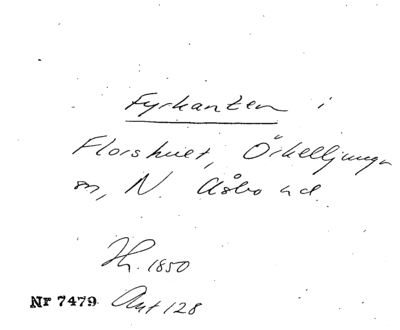 Fyrkanten i
Florshult, Örkelljunga
sn, N. Åsbo hd.
Hh. 1850
Nr 7479 Ant 128